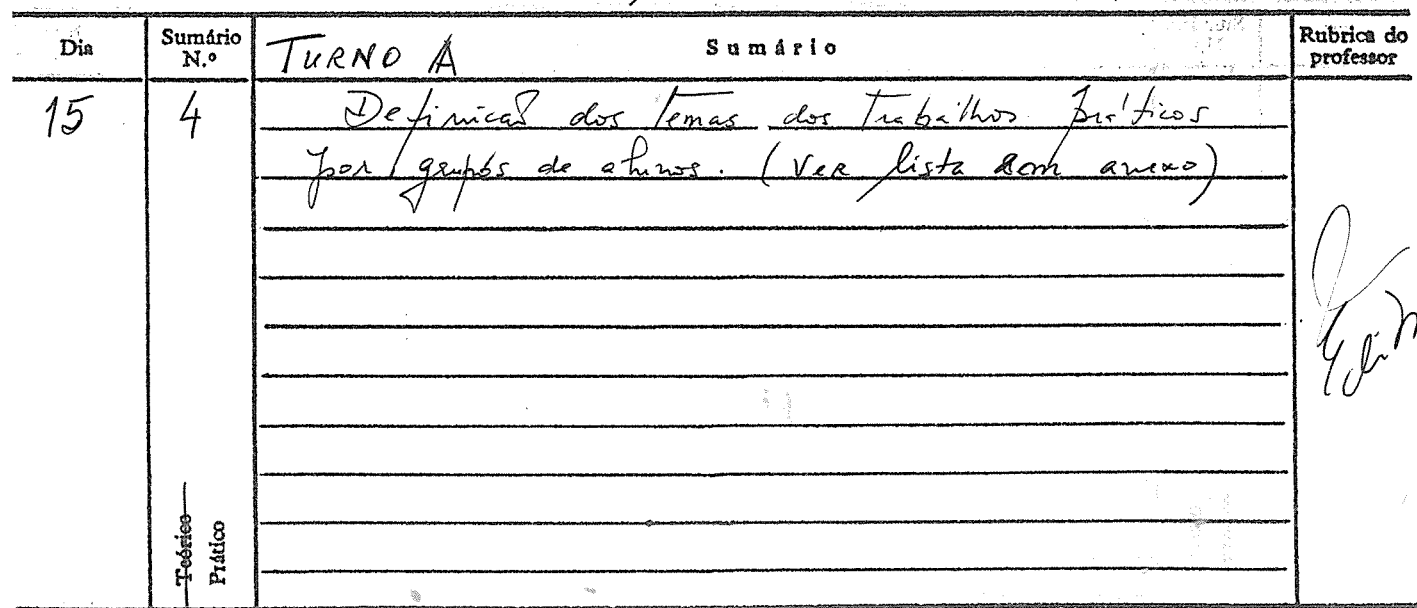 Dia
Sumário N.º
TURNO A
Sumário
Rubrica do professor
15
4
Definição dos temas dos Trabalhos práticos
por grupos de alunos. (Ver lista em anexo)
Teórico
Prático